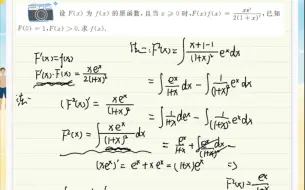 设 F(x) 为 f(x) 的原函数, 且当 x ≥ 0 时, F(x)f(x) = xe^x / 2(1+x)², 已知
F(0) = 1, F(x) > 0, 求 f(x).
F'(x) = f(x)
F'(x)·F(x) = xe^x / 2(1+x)²
(F²(x))' = xe^x / (1+x)²
F²(x) = ∫ xe^x / (1+x)² dx
(xe^x)' = e^x + xe^x = (1+x)e^x
法二: F²(x) = ∫ (x+1-1) / (1+x)² e^x dx
= ∫ e^x / (1+x) dx - ∫ 1 / (1+x)² e^x dx
= ∫ 1 / (1+x) de^x - ∫ e^x / (1+x)² dx
= e^x / (1+x) + ∫ e^x / (1+x)² dx
⇒
F²(x) = e^x / (1+x)